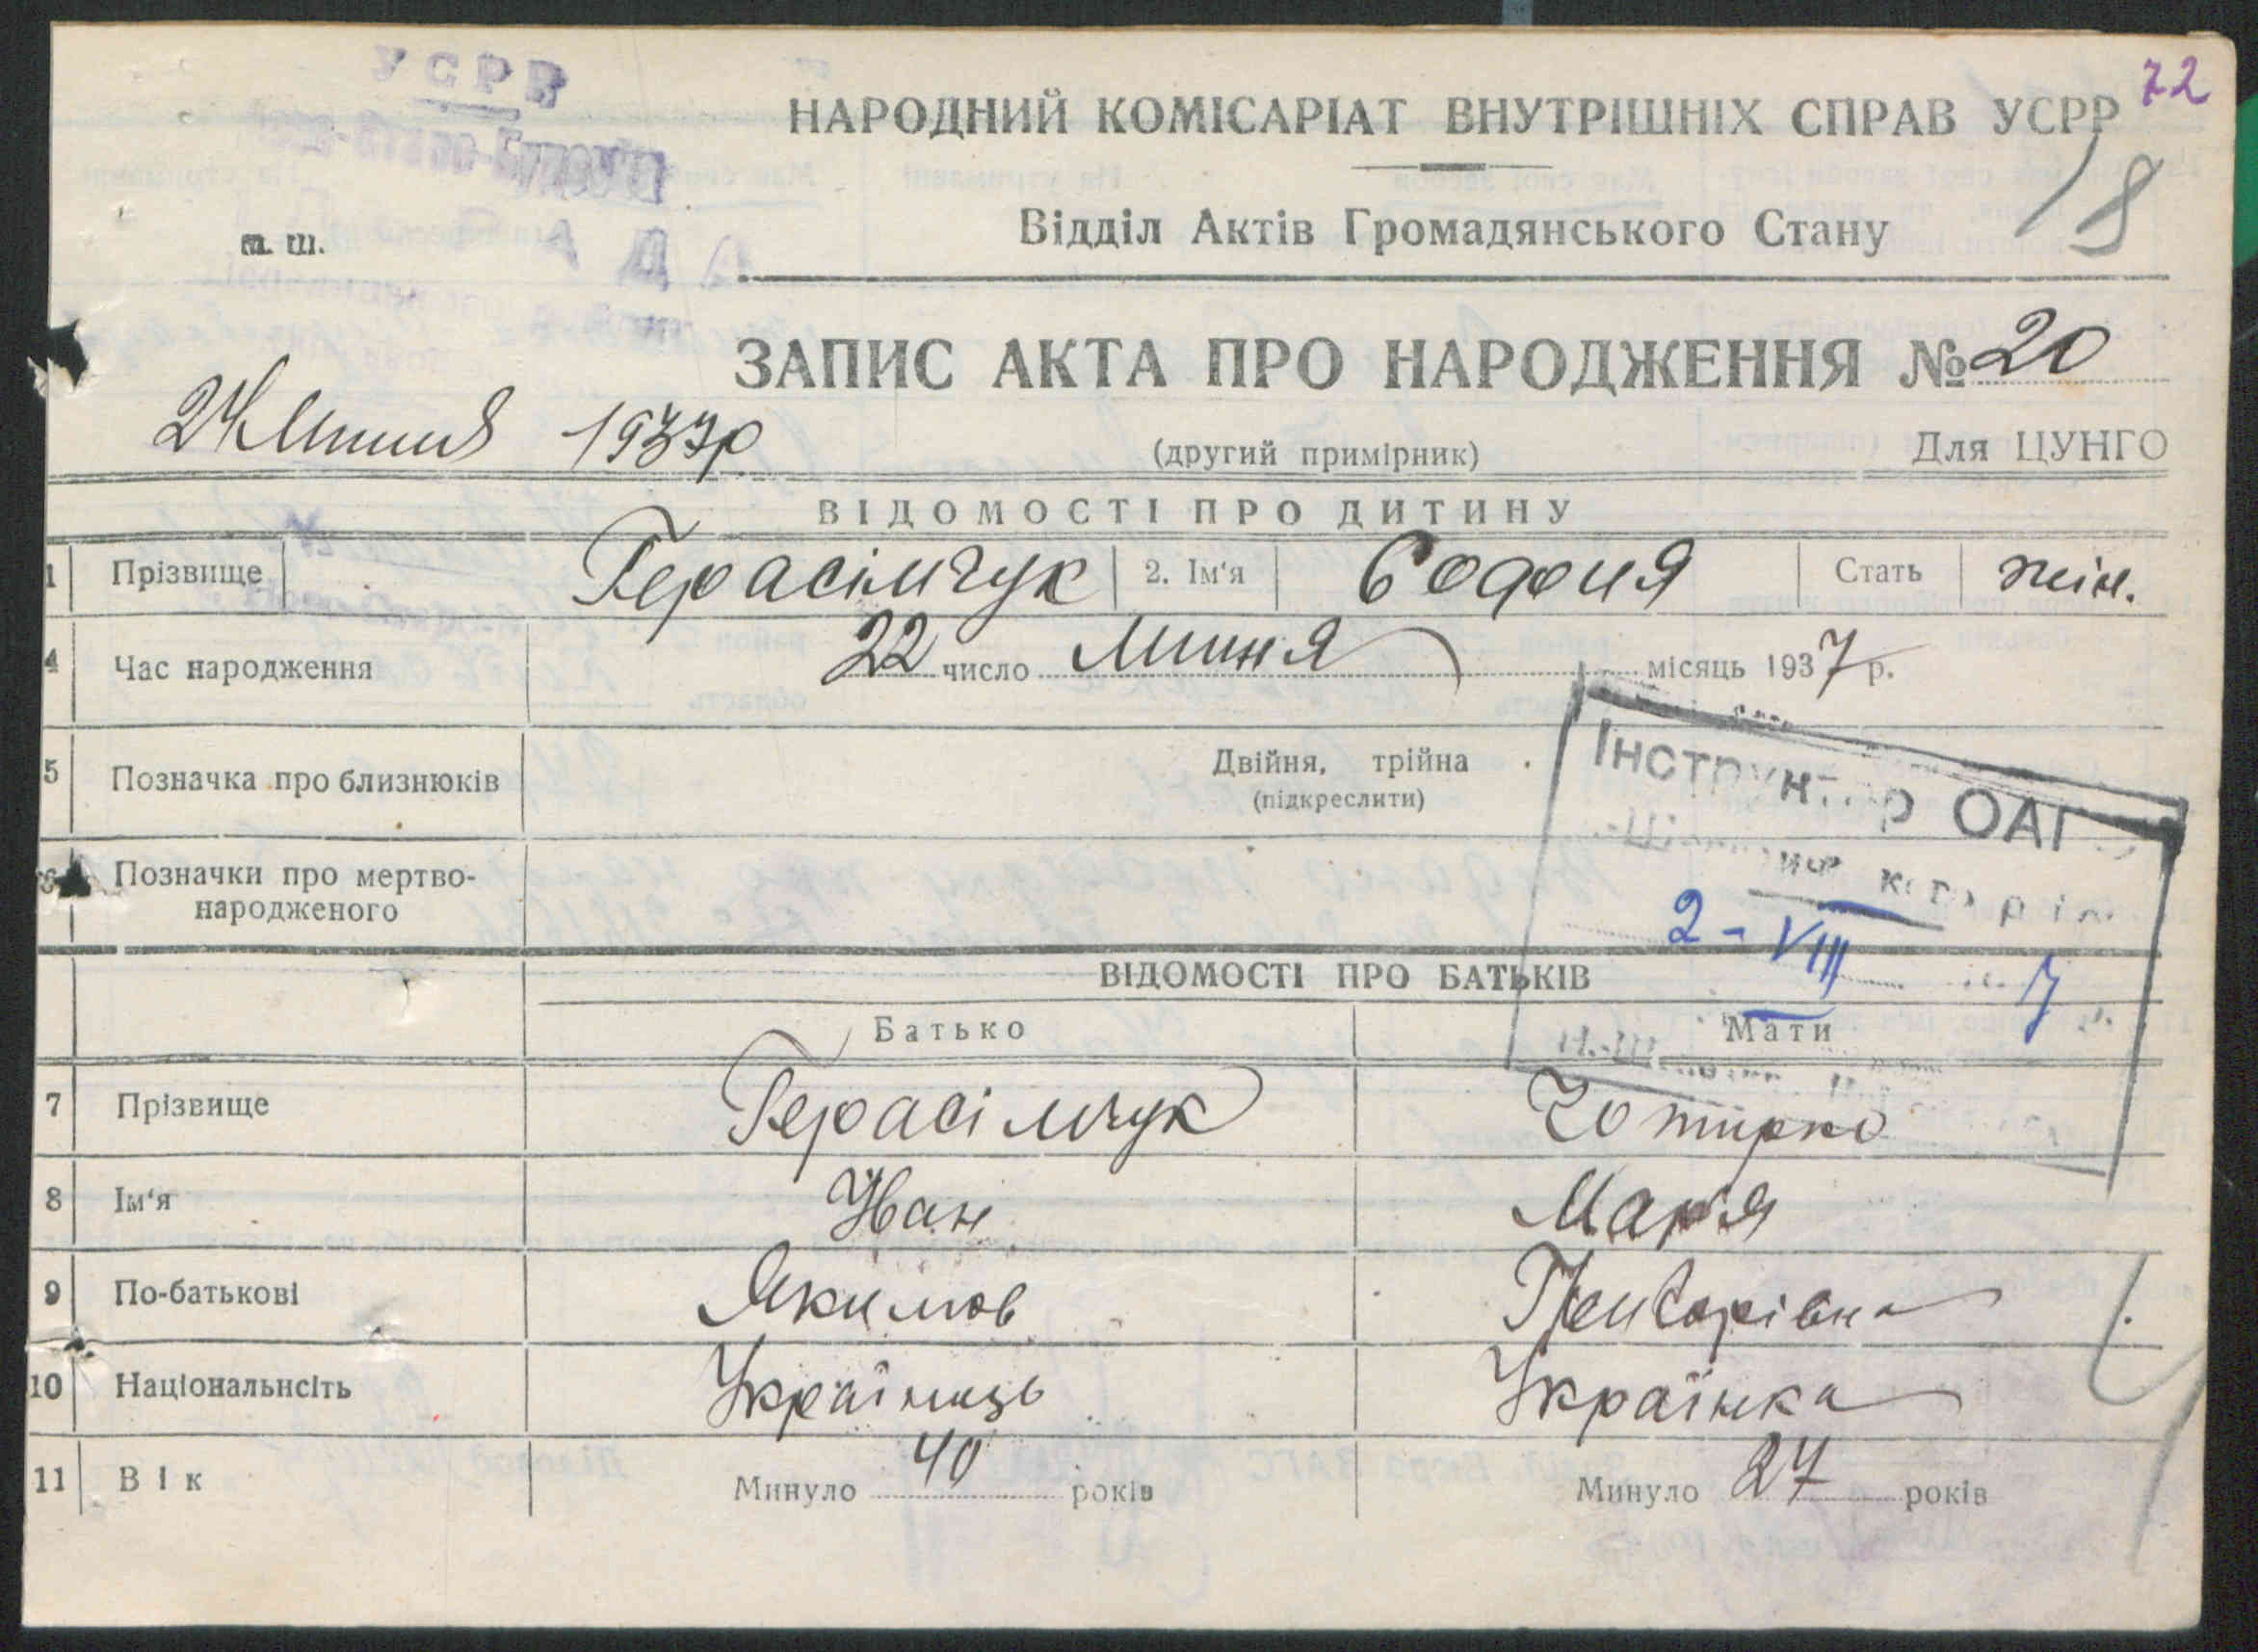 72
УСРР
НАРОДНИЙ КОМІСАРІАТ ВНУТРІШНІХ СПРАВ УСРР
18
м. ш.
Відділ Актів Громадянського Стану
ЗАПИС АКТА ПРО НАРОДЖЕННЯ № 20
24 1937р
(другий примірник) Для ЦУНГО
ВІДОМОСТІ ПРО ДИТИНУ
1 Прізвище Герасімчук 2. Ім'я Софія Стать жін.
4 Час народження 22 число липня місяць 1937 р.
5 Позначка про близнюків Двійня, трійна
(підкреслити)
Інструктор ОАГС
6 Позначки про мертво-
народженого
2-VIII 7
ВІДОМОСТІ ПРО БАТЬКІВ
Батько Мати
7 Прізвище Герасімчук Чотирко
8 Ім'я Іван Мар'я
9 По-батькові Якимов
10 Національнсіть Українець Українка
11 Вік Минуло 40 років Минуло 27 років